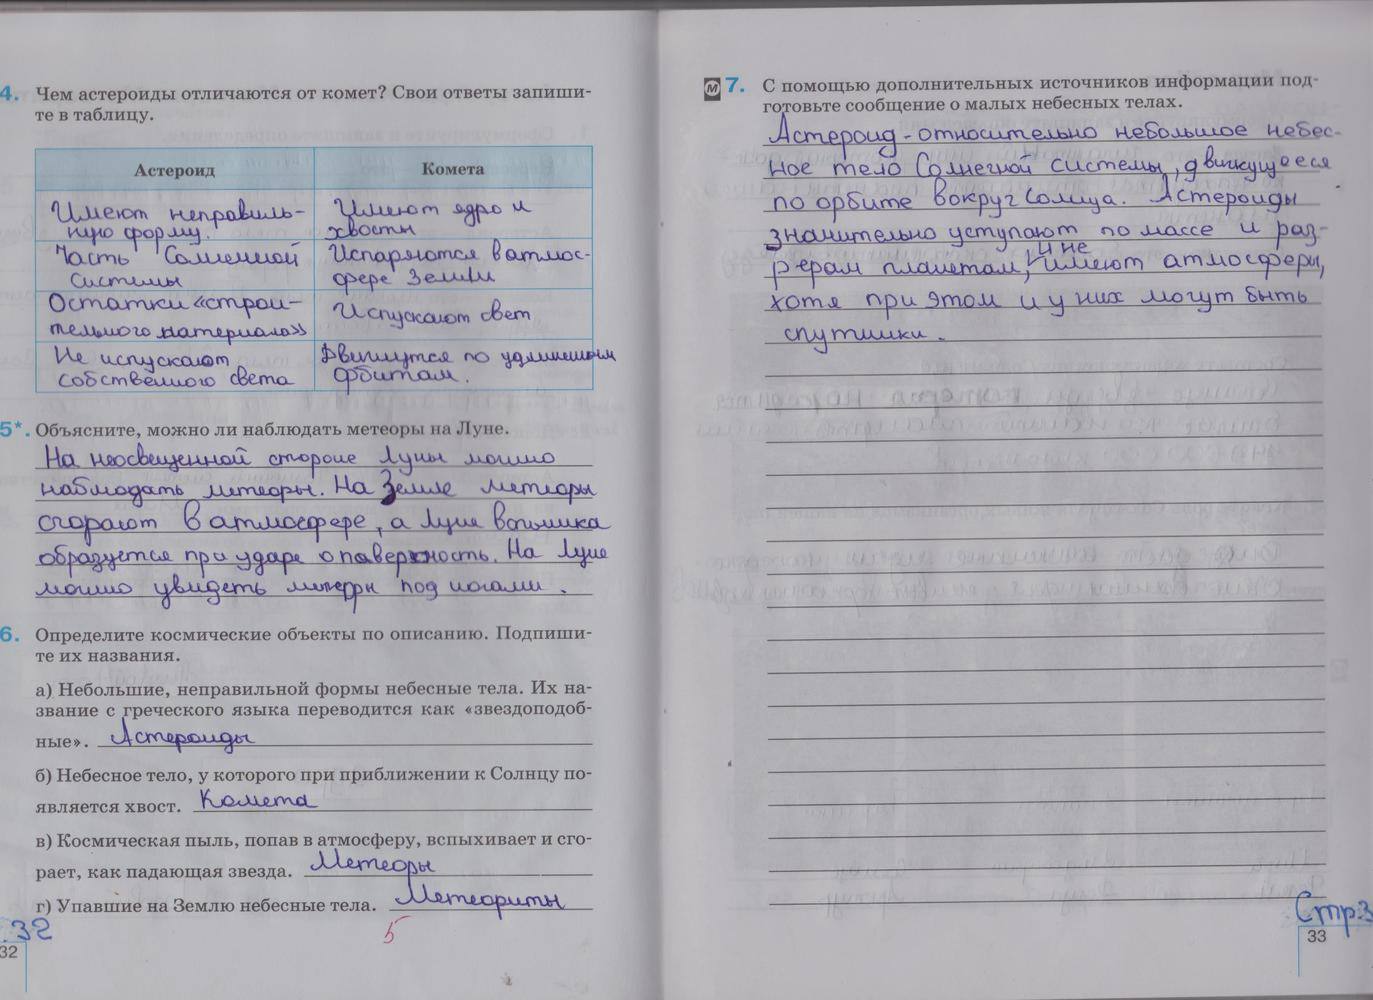 4. Чем астероиды отличаются от комет? Свои ответы запиши-
те в таблицу.
Астероид Комета
Имеют неправиль- Имеют ядро и
ную форму. хвосты
Часть Солнечной Испаряются в атмос-
системы фере Земли
Остатки «строи- Испускают свет
тельного материала»
Не испускают Двигаются по удлиненным
собственного света орбитам.
5*. Объясните, можно ли наблюдать метеоры на Луне.
На неосвещенной стороне Луны можно
наблюдать метеоры. На Земле метеоры
сгорают в атмосфере, а Луне вспышка
образуется при ударе о паверхность. На Луне
можно увидеть метеоры под ногами.
6. Определите космические объекты по описанию. Подпиши-
те их названия.
а) Небольшие, неправильной формы небесные тела. Их на-
звание с греческого языка переводится как «звездоподоб-
ные». Астероиды
б) Небесное тело, у которого при приближении к Солнцу по-
является хвост. Комета
в) Космическая пыль, попав в атмосферу, вспыхивает и сго-
рает, как падающая звезда. Метеоры
г) Упавшие на Землю небесные тела. Метеориты
32
5
32
М 7. С помощью дополнительных источников информации под-
готовьте сообщение о малых небесных телах.
Астероид - относительно небольшое небес-
ное тело Солнечной системы, движущееся
по орбите вокруг Солнца. Астероиды
значительно уступают по массе и раз-
мерам планетам, и не имеют атмосферы,
хотя при этом и у них могут быть
спутники.
Стр.3
33